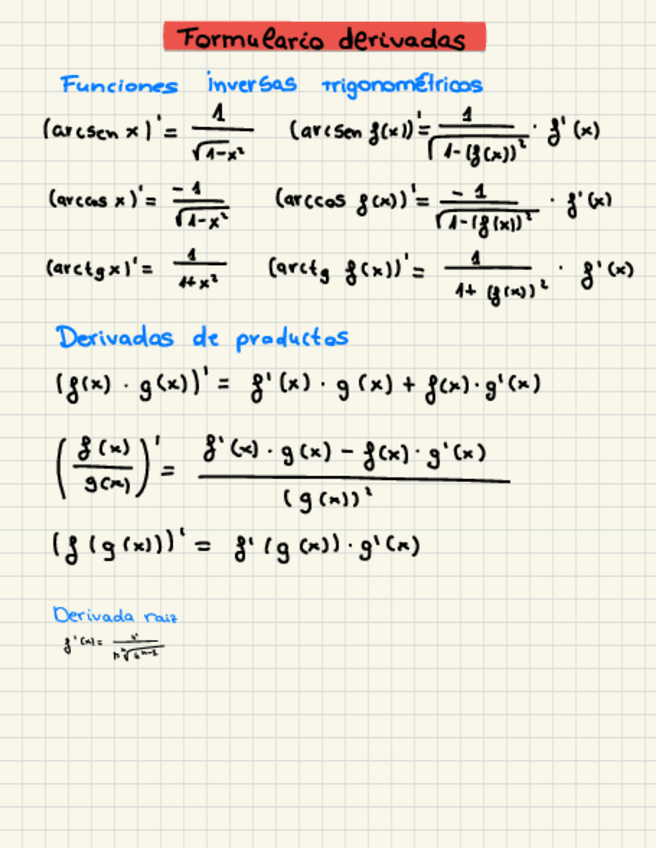 Formulario derivadas
Funciones inversas trigonométricas
(arcsen x)' = 1/√(1-x²) (arcsen f(x))' = 1/√(1-(f(x))²) · f'(x)
(arccos x)' = -1/√(1-x²) (arccos f(x))' = -1/√(1-(f(x))²) · f'(x)
(arctg x)' = 1/(1+x²) (arctg f(x))' = 1/(1+(f(x))²) · f'(x)
Derivadas de productos
(f(x) · g(x))' = f'(x) · g(x) + f(x) · g'(x)
(f(x)/g(x))' = (f'(x) · g(x) - f(x) · g'(x))/(g(x))²
(f(g(x)))' = f'(g(x)) · g'(x)
Derivada raiz
f'(x) =